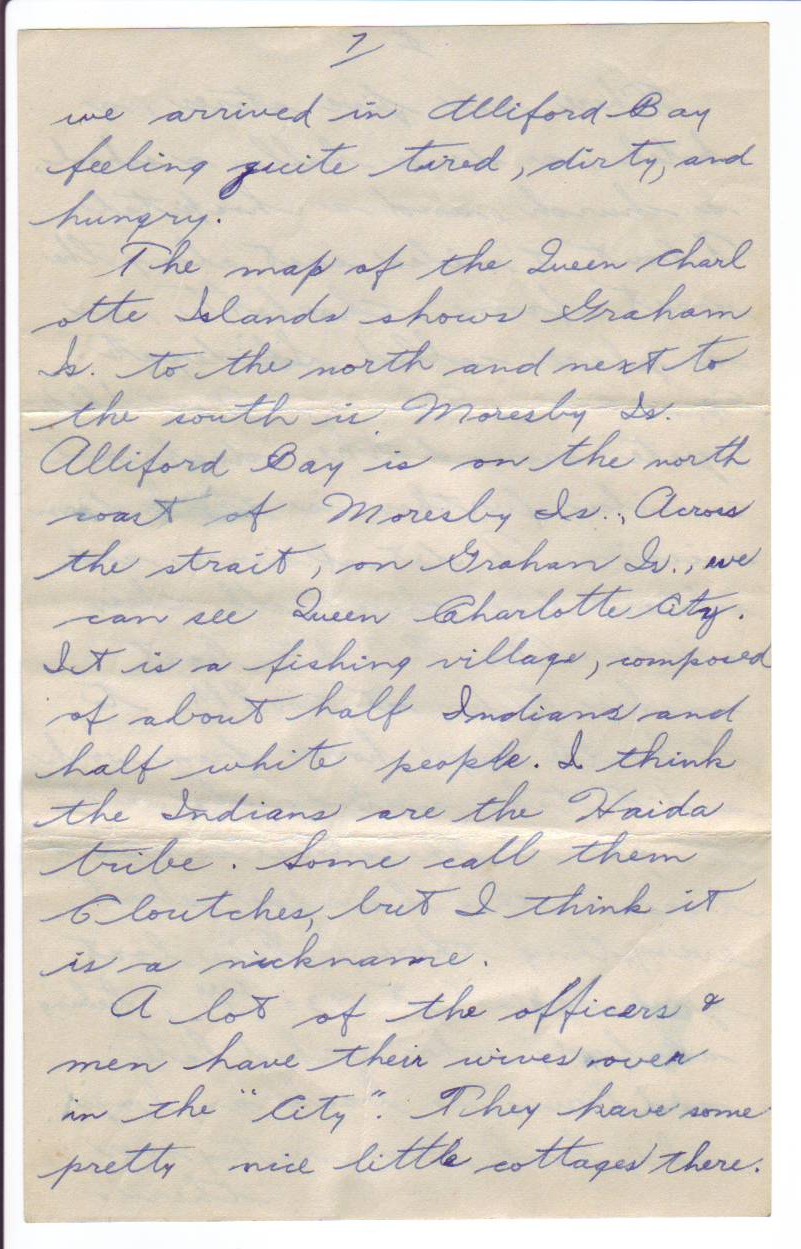 7
we arrived in Alliford Bay
feeling quite tired, dirty, and
hungry.
The map of the Queen Charl
otte Islands shows Graham
Is. to the north and next to
the south is Moresby Is.
Alliford Bay is on the north
coast of Moresby Is.. Across
the strait, on Graham Is., we
can see Queen Charlotte City.
It is a fishing village, composed
of about half Indians and
half white people. I think
the Indians are the Haida
tribe. Some call them
Cloutches, but I think it
is a nickname.
A lot of the officers &
men have their wives over
in the "City". They have some
pretty nice little cottages there.